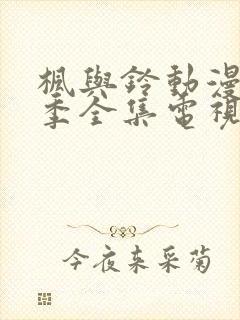 楓與鈴動漫
季全集電視
今夜来采菊